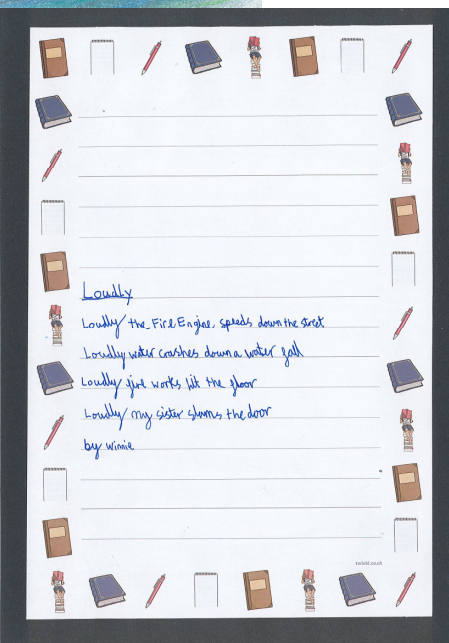 Loudly
Loudly the Fire Engine, speeds down the street
Loudly water crashes down a water fall
Loudly fire works hit the floor
Loudly my sister slams the door
by winnie
twinkl.co.uk